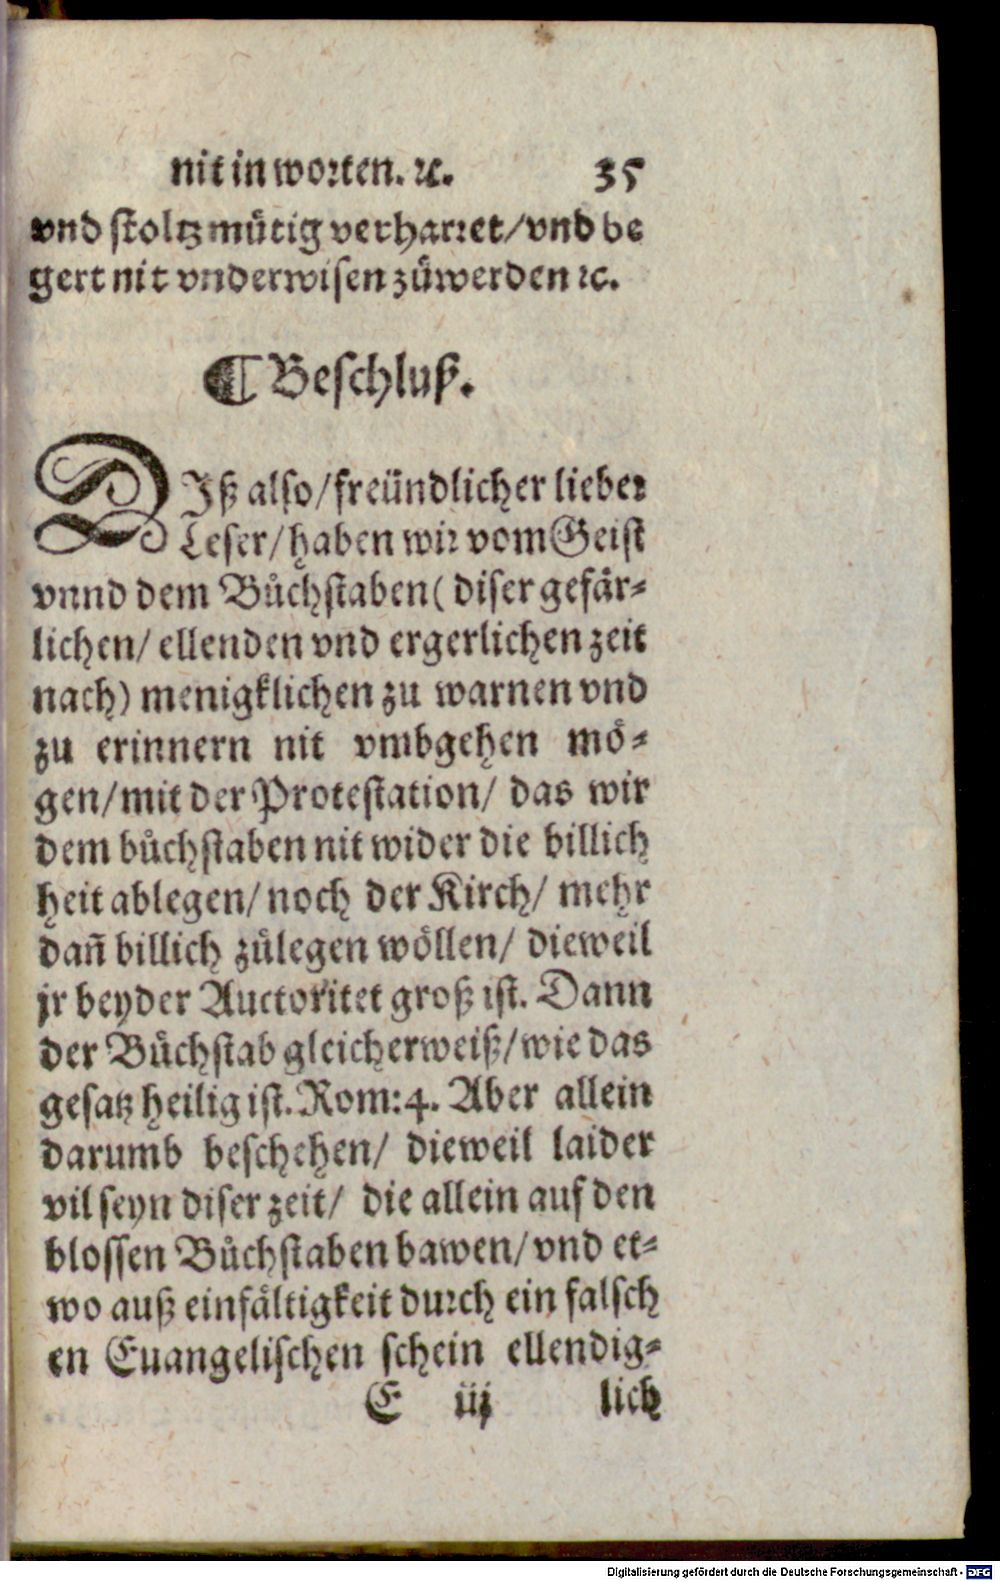 nit in worten. ꝛc. 35
vnd stoltzmütig verharret/vnd be
gert nit vnderwisen zůwerden ꝛc.
¶ Beschluß.
DJß also/freündlicher lieber
Leser/haben wir vom Geist
vnnd dem Bůchstaben( diser gefär⸗
lichen/ ellenden vnd ergerlichen zeit
nach) menigklichen zu warnen vnd
zu erinnern nit vmbgehen mö⸗
gen/mit der Protestation/ das wir
dem bůchstaben nit wider die billich
heit ablegen/noch der Kirch/ mehr
dañ billich zůlegen wöllen/ dieweil
jr beyder Auctoritet groß ist. Dann
der Bůchstab gleicherweiß/wie das
gesatz heilig ist. Rom:4. Aber allein
darumb beschehen/ dieweil laider
vil seyn diser zeit/ die allein auf den
blossen Bůchstaben bawen/vnd et⸗
wo auß einfältigkeit durch ein falsch
en Euangelischen schein ellendig⸗
E iij lich
Digitalisierung gefördert durch die Deutsche Forschungsgemeinschaft - DFG